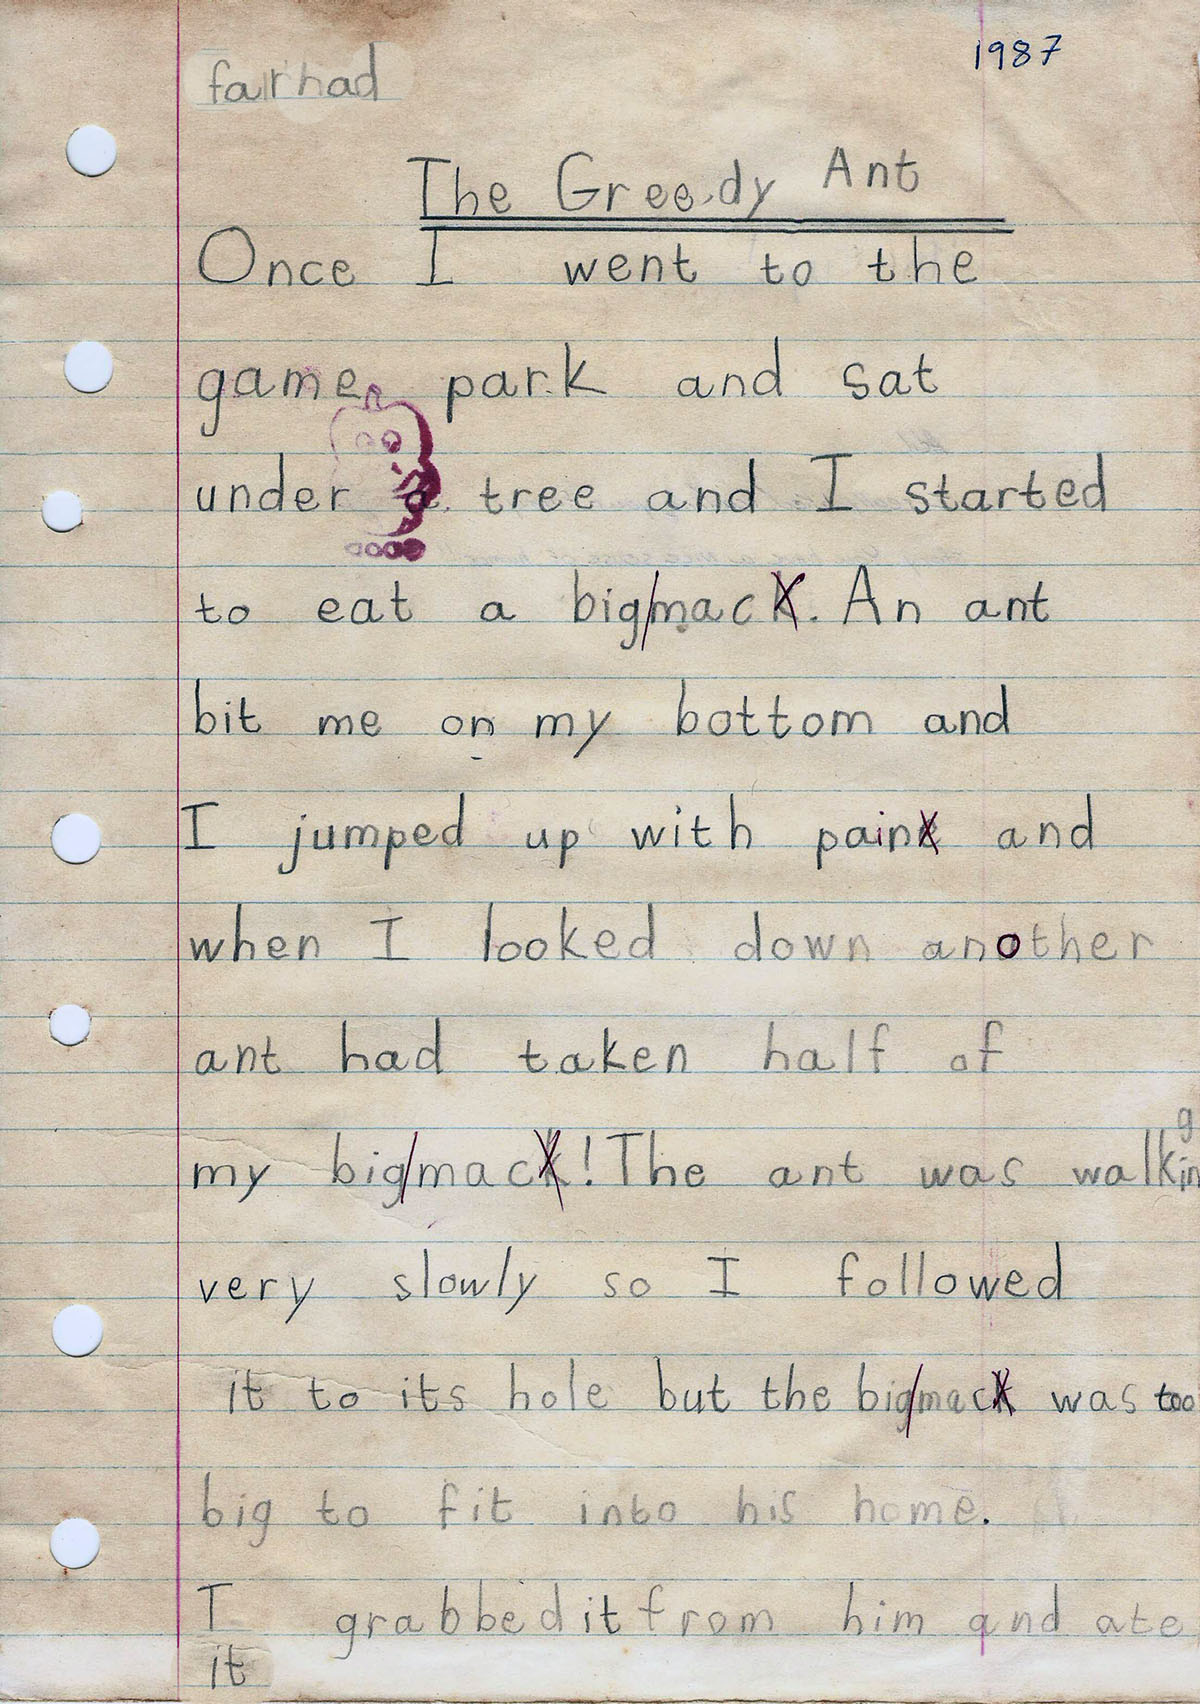 1987
fairhad
The Greedy Ant
Once I went to the
game park and sat
under a tree and I started
to eat a big/mack. An ant
bit me on my bottom and
I jumped up with pain and
when I looked down another
ant had taken half of
my big/mack! The ant was walking
very slowly so I followed
it to its hole but the big/mack was too
big to fit into his home.
I grabbed it from him and ate
it